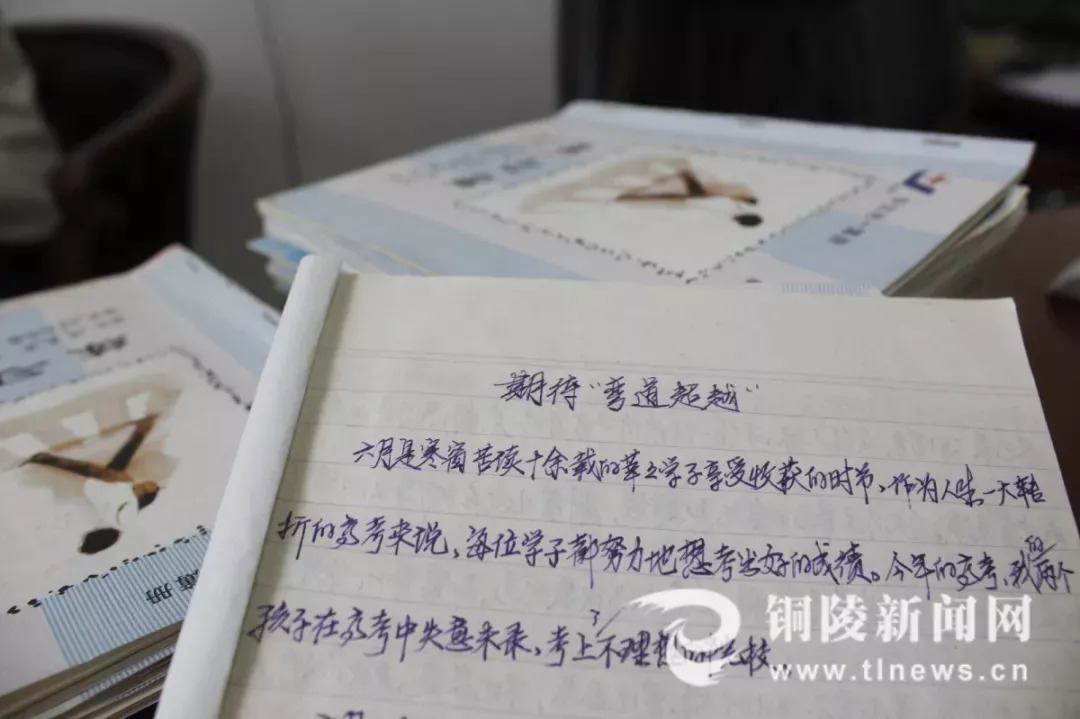 期待"弯道超越"
六月是寒窗苦读十余载的莘莘学子享受收获的时节，作为人生一大转
折的高考来说，每位学子都努力地想考出好的成绩。今年的高考，我的两个
孩子在高考中失意未录，考上了不理想的院校，
铜陵新闻网
www.tlnews.cn